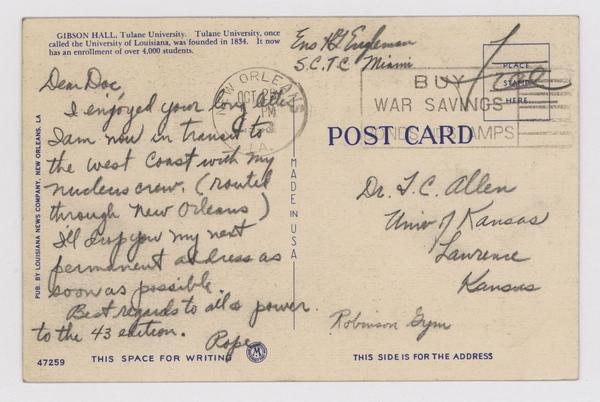 GIBSON HALL, Tulane University. Tulane University, once
called the University of Louisiana, was founded in 1834. It now
has an enrollment of over 4,000 students.
Ens H G Engleman
S.C.T.C Miami
Free
PLACE
STAMP
HERE
NEW ORLEANS
OCT
PM
LA.
BUY
WAR SAVINGS
STAMPS
Dear Doc,
I enjoyed your long letter
I am now in transit to
the west coast with my
nucleus crew. (routed
through New Orleans)
I'll drop you my next
permanent address as
soon as possible.
Best regards to all & power
to the 43 edition.
Pope
PUB. BY LOUISIANA NEWS COMPANY, NEW ORLEANS, LA
MADE IN USA
POST CARD
Dr. F. C. Allen
Univ of Kansas
Lawrence
Kansas
Robinson Gym
47259
THIS SPACE FOR WRITING
THIS SIDE IS FOR THE ADDRESS